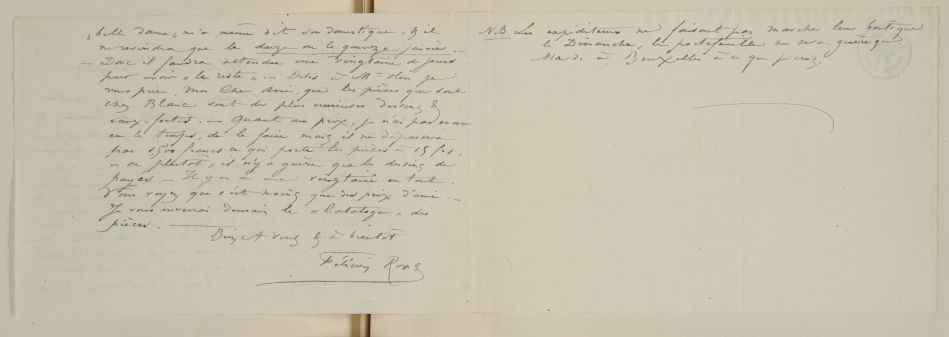 belle dame" m'a même dit son domestique, & il
ne reviendra que le douze ou le quinze janvier. —
— Donc il faudra attendre une vingtaine de jours
pour avoir "le reste" — Dites à Mr Olin je
vous prie, mon Cher ami, que les pièces qui sont
chez Blanc sont des plus curieuses dessins &
eaux-fortes. — Quant au prix, je n'ai pas encore
eu le temps, de le faire mais il ne dépassera
pas 1500 francs ce qui porte les pièces à 15 frs,
— ou plutôt, il n'y a guère que les dessins de
payés — Il y en a une vingtaine en tout.
Vous voyez que c'est moins que des prix d'ami. —
Je vous enverrai demain le "Catalogue" des
pièces. —
Bien A vous & à bientôt
Félicien Rops
N.B Les expéditeurs ne faisant pas marcher leur boutique
le Dimanche, le portefeuille ne sera guère que
Mardi à Bruxelles à ce que je crois.